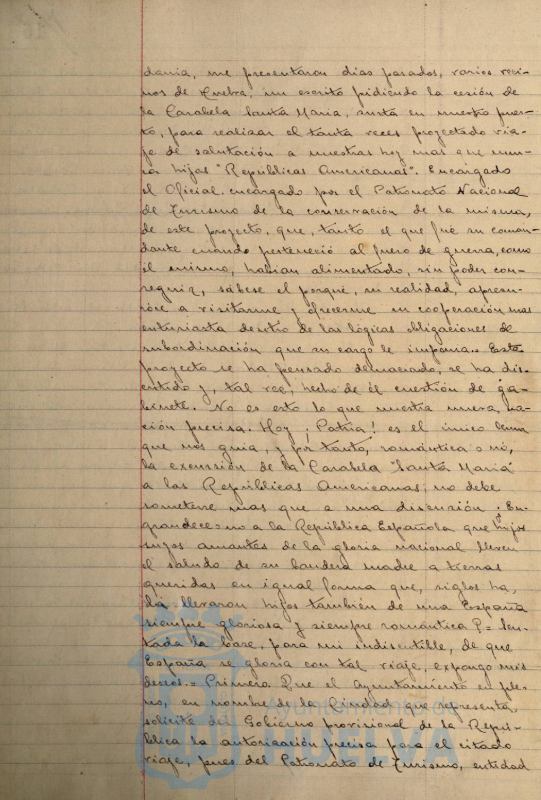 dania, me presentaron dias pasados, varios veci-
nos de Huelva, un escrito pidiendo la cesión de
la Carabela Santa Maria, surta en nuestro puer-
to, para realizar el tanta veces proyectado via-
je de salutación a nuestras hoy mas que nun-
ca hijas "Repúblicas Americanas". Encargado
el Oficial encargado por el Patronato Nacional
de Turismo de la conservación de la misma,
de este proyecto, que, tanto el que fué su coman-
dante cuando perteneció al fuero de guerra, como
él mismo, habian alimentado, sin poder con-
seguir, sábese el porqué, su realidad, apresu-
róse a visitarme y ofrecerme su cooperación mas
entusiasta dentro de las lógicas obligaciones de
subordinación que su cargo le impone. Este
proyecto se ha pensado demasiado, se ha dis-
cutido y, tal vez, hecho de él cuestión de ga-
binete. No es esto lo que nuestra nueva na-
ción precisa. Hoy ¡Patria! es el único lema
que nos guia, y por tanto, romántica o nó,
la excursión de la Carabela "Santa Maria"
a las Repúblicas Americanas, no debe
someterse mas que a una discusión. En-
grandece o no a la República Española que hijos
suyos amantes de la gloria nacional lleven
el saludo de su bandera madre a tierras
queridas en igual forma que, siglos ha,
la llevaron hijos también de una España
siempre gloriosa y siempre romántica?= Sen-
tada la base, para mi indiscutible, de que
España se gloria con tal viaje, expongo mis
deseos.= Primero. Que el Ayuntamiento en ple-
no, en nombre de la Ciudad que representa,
solicite del Gobierno provisional de la Repú-
blica la autorización precisa para el citado
viaje, pues del Patronato de Turismo, entidad
Ayuntamiento de
HUELVA